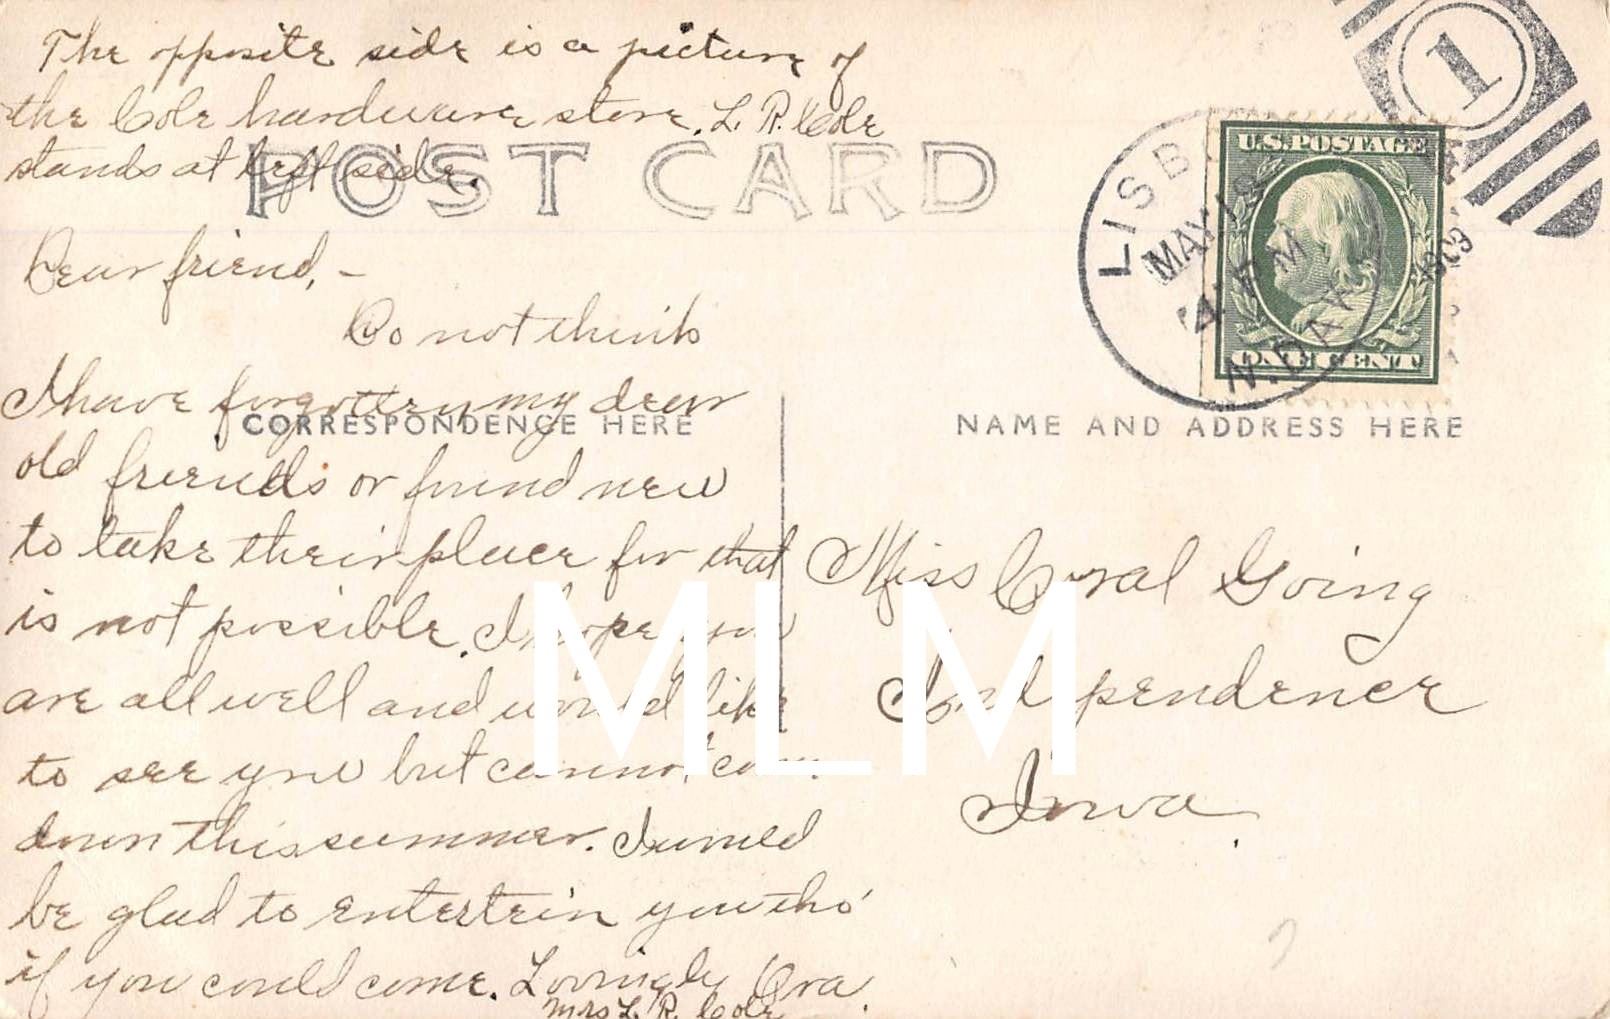 The opposite side is a picture of
the Cole hardware store. L. R. Cole
stands at left side.
POST CARD
Dear friend, –
Do not think
I have forgotten my dear
old friends or found new
to take their place for that
is not possible. I hope you
are all well and would like
to see you but cannot come
down this summer. I would
be glad to entertein you tho'
if you could come. Lovingly Ora.
Mrs L. R. Cole
CORRESPONDENCE HERE
NAME AND ADDRESS HERE
LISB
MAY
4 P M
1909
N. DAK
1
U.S. POSTAGE
ONE CENT
Miss Coral Going
Independence
Iowa.
MLM